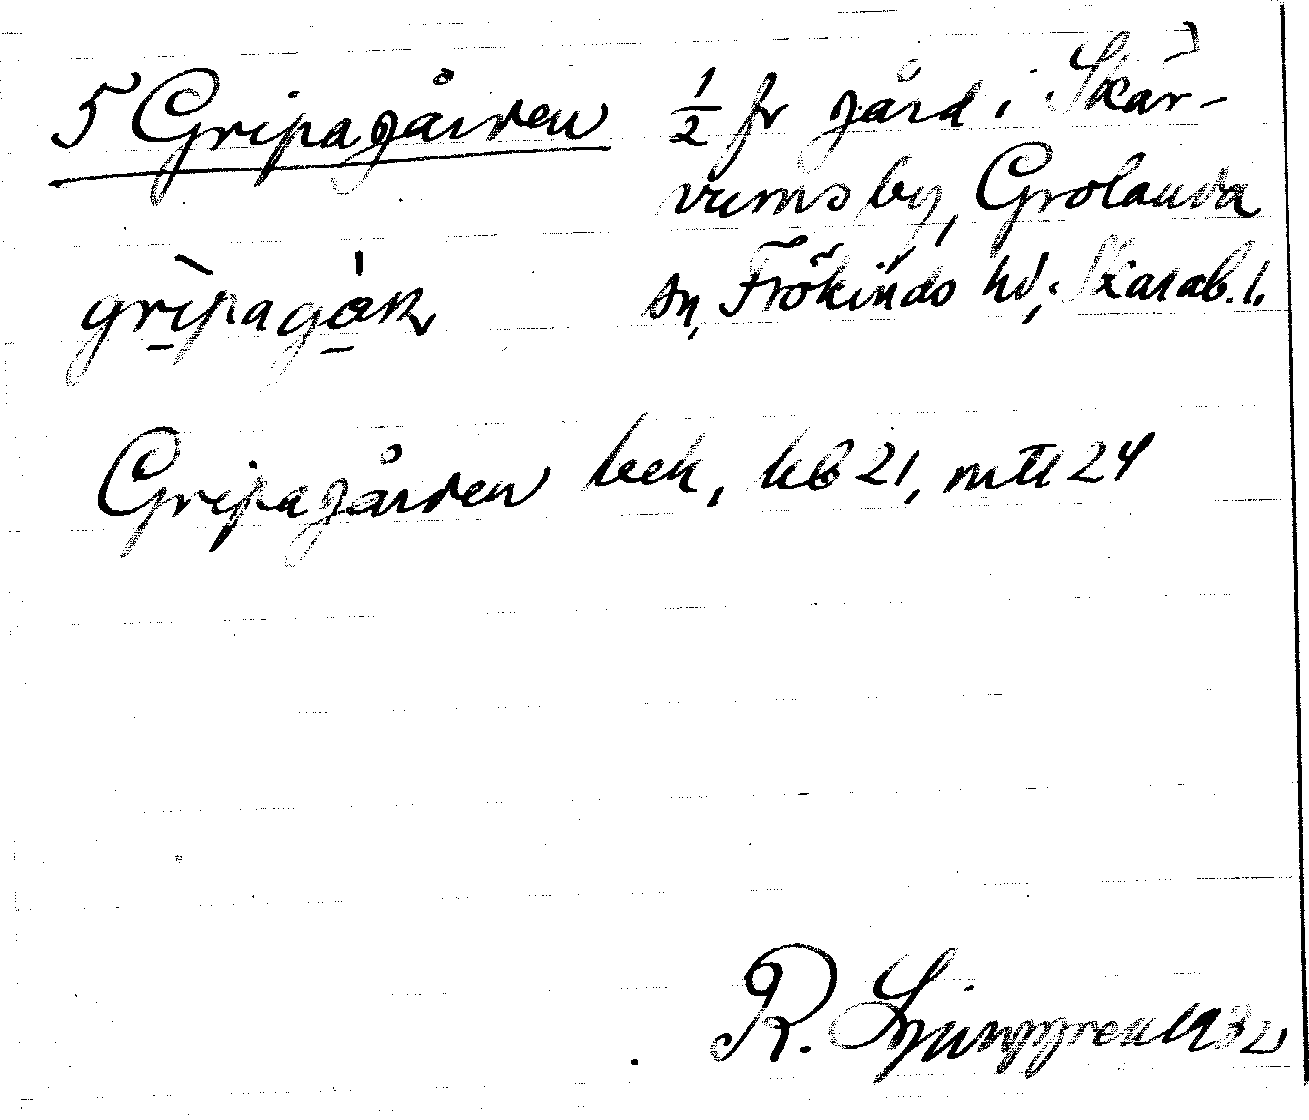 5 Gripagården 1/2 fr gård i Skär-
vums by, Grolanda
sn, Frökinds hd, Skarab. l.
grìpagɑ̀ɳ
Gripagården beck, kb 21, mtl 24
R. Ljunggren 1932